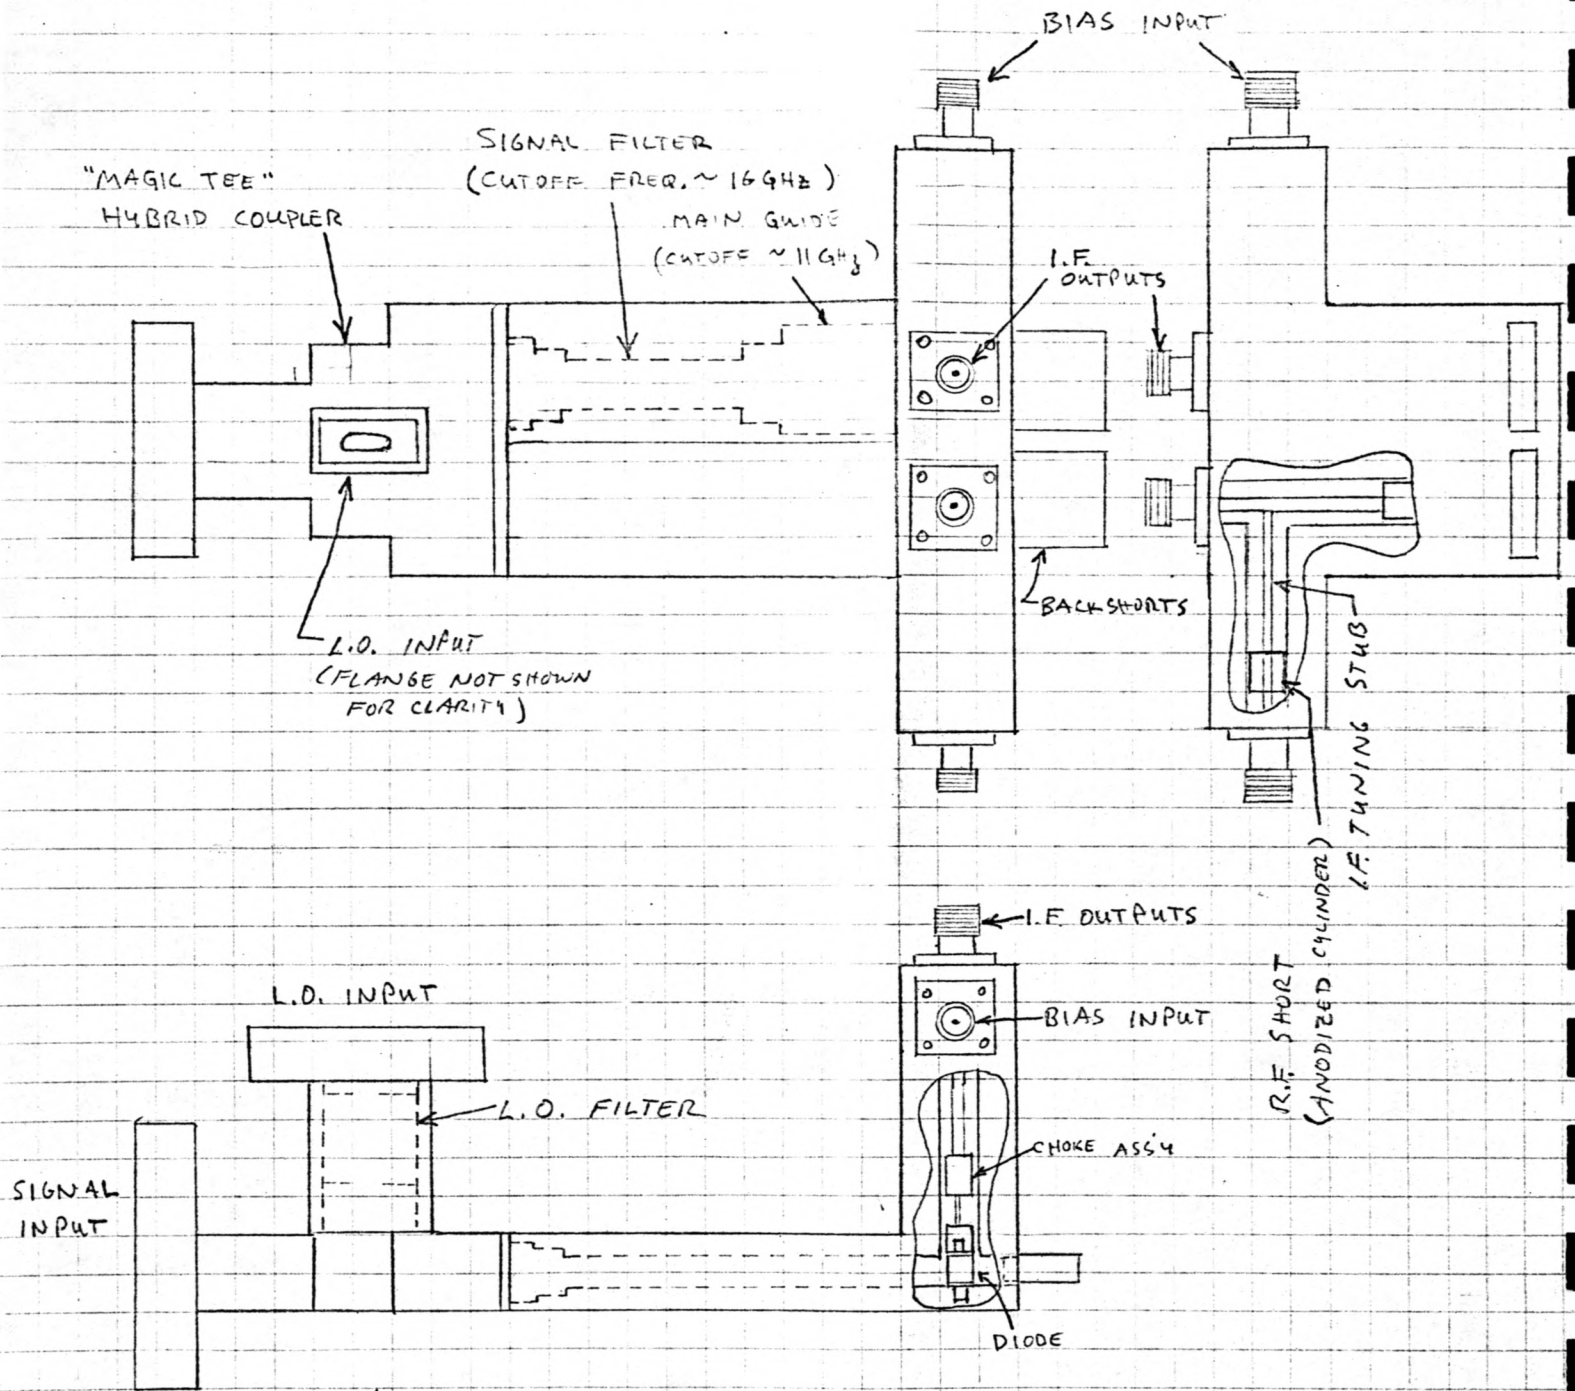 BIAS INPUT
SIGNAL FILTER
(CUTOFF FREQ. ~ 16 GHz)
"MAGIC TEE"
HYBRID COUPLER
MAIN GUIDE
(CUTOFF ~ 11 GHz)
I.F.
OUTPUTS
BACKSHORTS
L.O. INPUT
(FLANGE NOT SHOWN
FOR CLARITY)
I.F. TUNING STUB
R.F. SHORT
(ANODIZED CYLINDER)
I.F. OUTPUTS
L.O. INPUT
BIAS INPUT
L.O. FILTER
CHOKE ASS'Y
SIGNAL
INPUT
DIODE